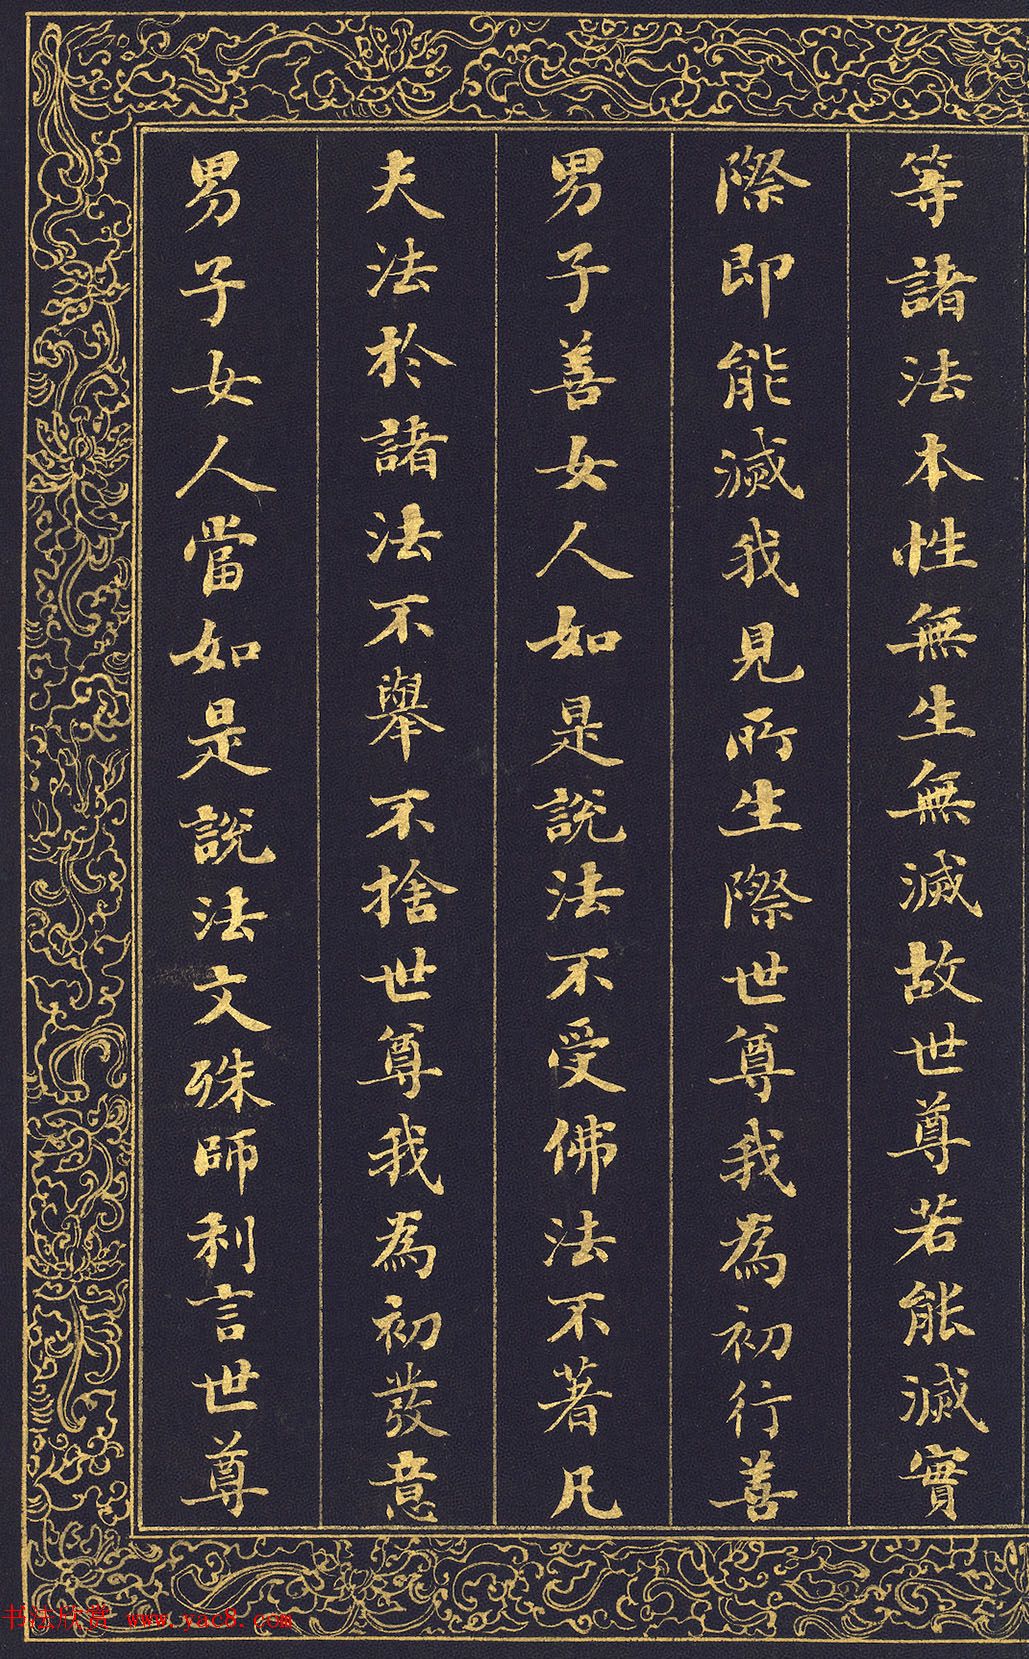 等諸法本性無生無滅故世尊若能滅實
際即能滅我見所生際世尊我為初行善
男子善女人如是說法不受佛法不著凡
夫法於諸法不舉不捨世尊我為初發意
男子女人當如是說法文殊師利言世尊
书法欣赏 www.yac8.com